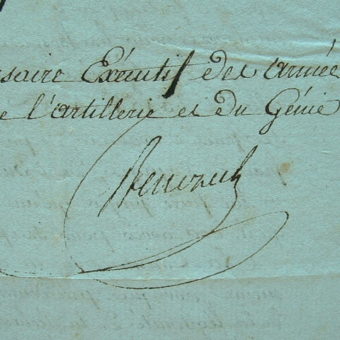 saire Exécutif des armée
e l'artillerie et du Génie